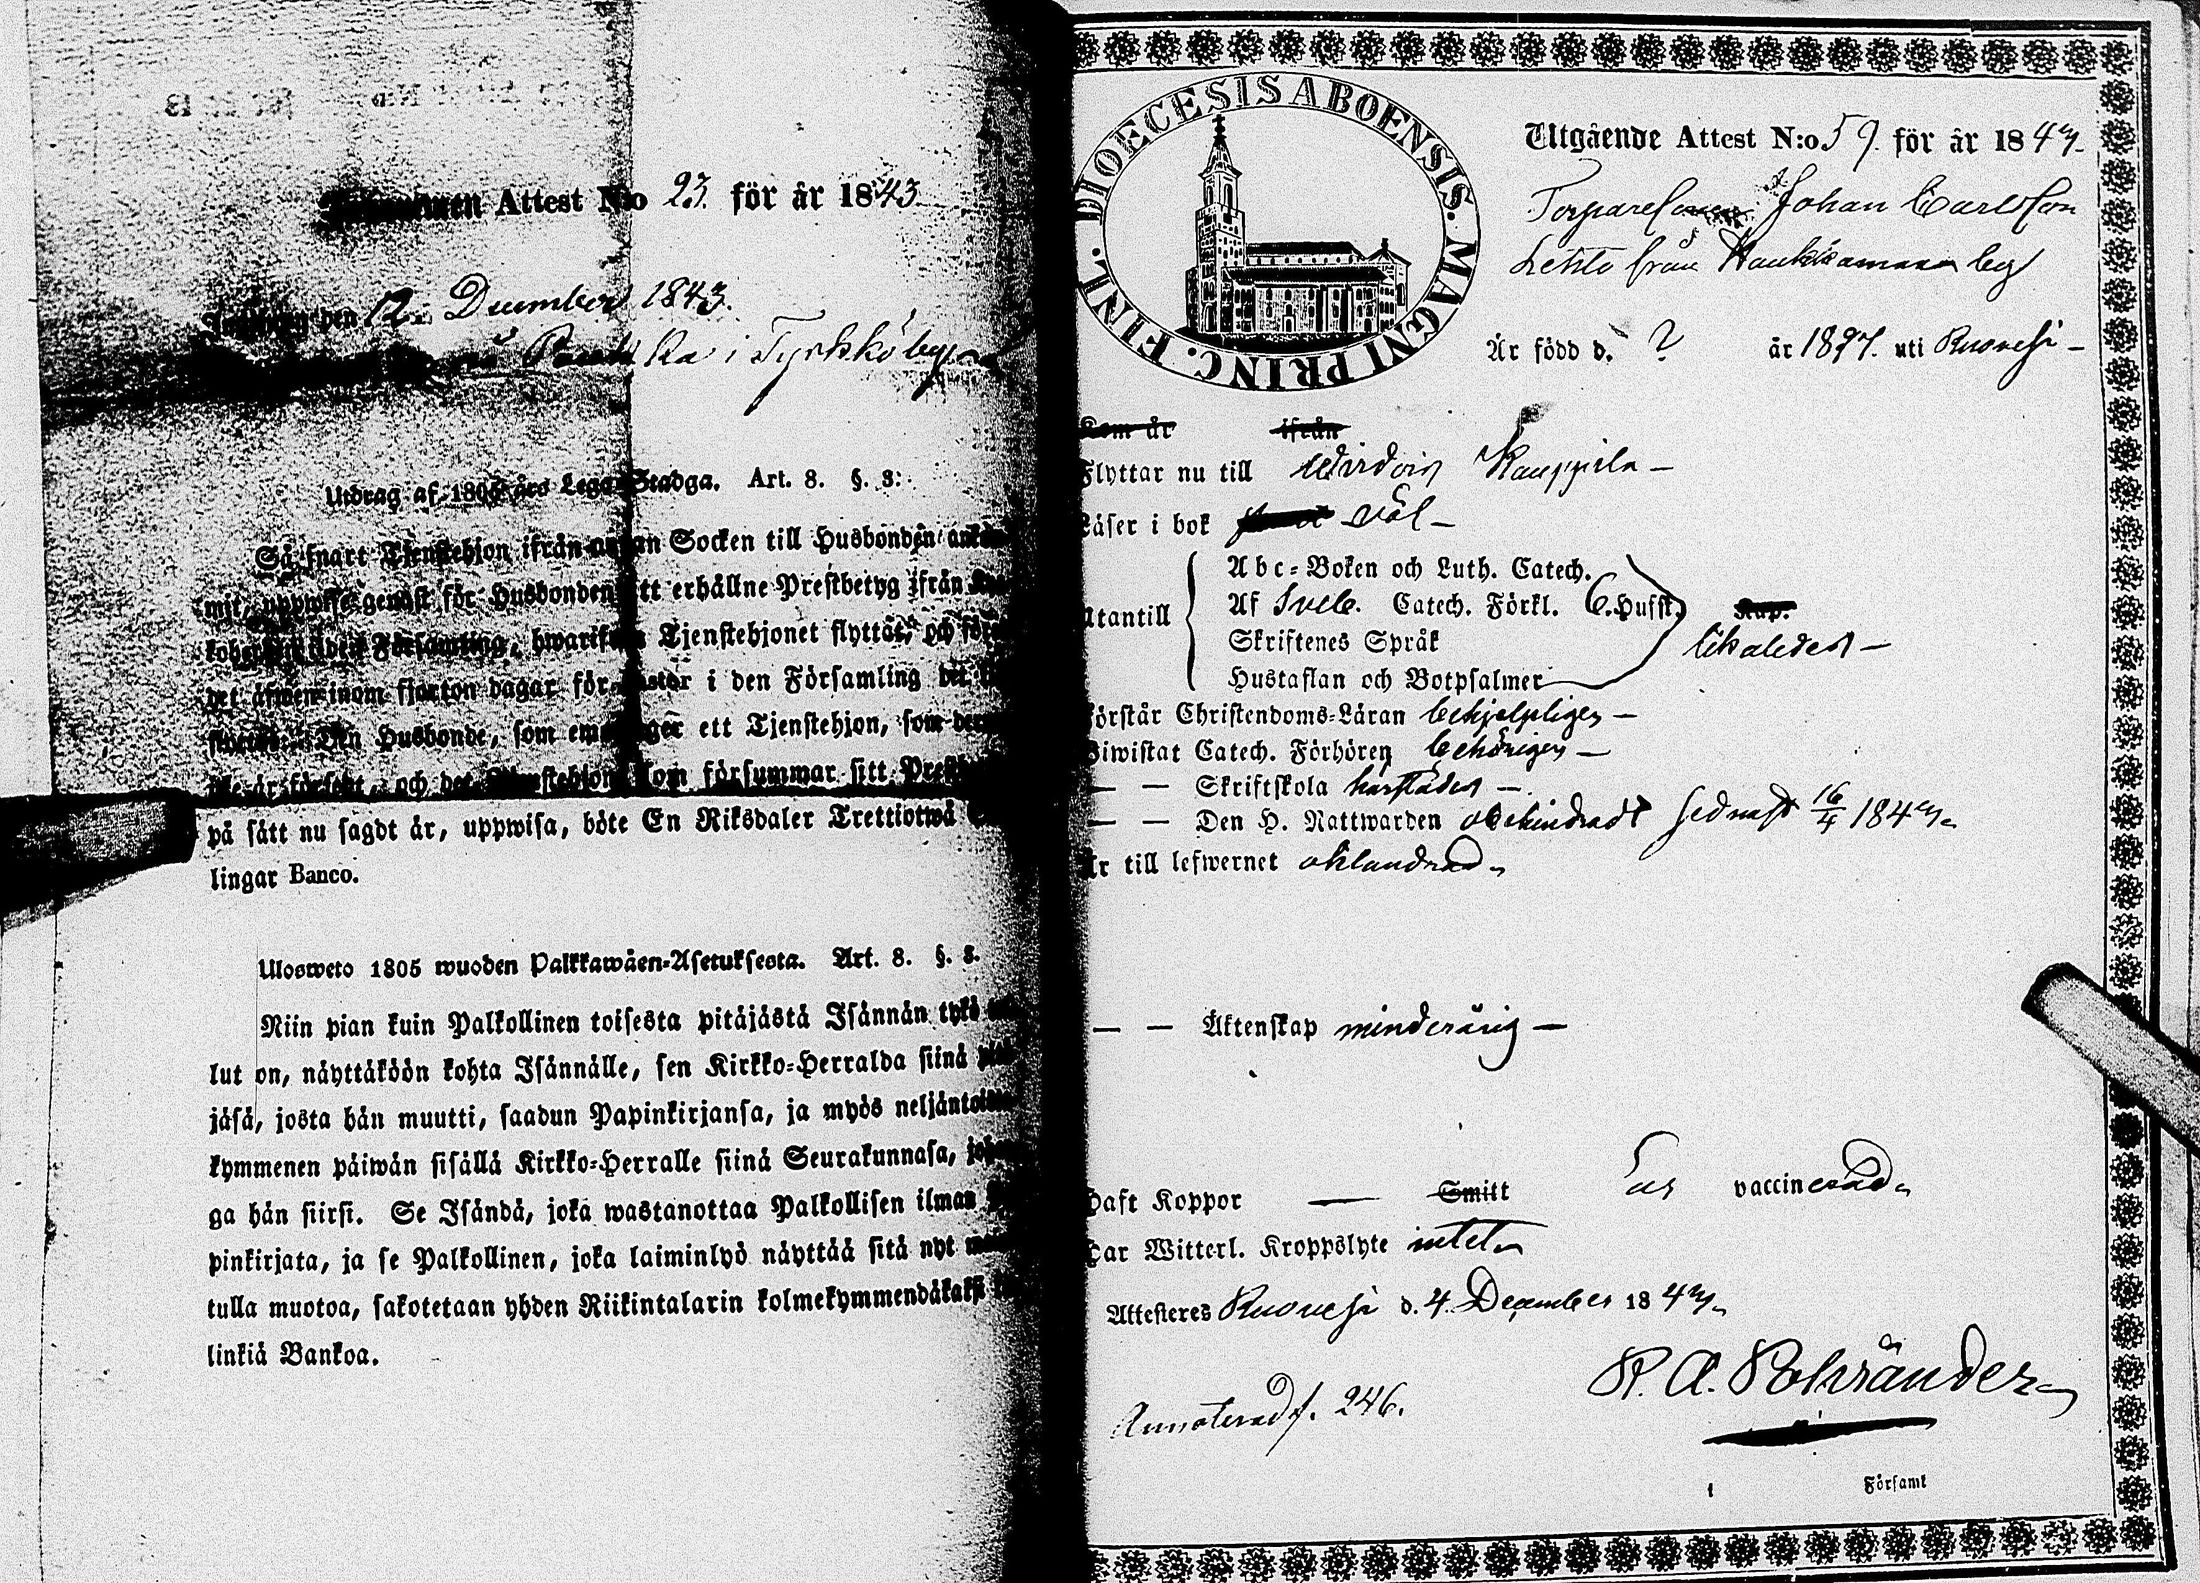 Attest N:o 23. för år 1843.
den 12. December 1843.
i Tyrkköby
Utdrag af 1805 års Lego-Stadga. Art. 8. §. 8:
Så snart Tjenstehjon ifrån annan Socken till Husbonden
mit, uppwise genast för Husbonden ett erhållne Prestbetyg ifrån
Församling, hwarifrån Tjenstehjonet flyttat, och
det äfwen inom fjorton dagar för Pastor i den Församling det
Den Husbonde, som emottager ett Tjenstehjon, som
och det Tjenstehjon som försummar sitt
på sätt nu sagdt är, uppwisa, böte En Riksdaler Trettiotwå
lingar Banco.
Ulosweto 1805 wuoden Palkkawäen-Asetuksesta. Art. 8. §. 8.
Niin pian kuin Palkollinen toisesta pitäjästä Isännän tykö
lut on, näyttäköön kohta Isännälle, sen Kirkko-Herralda siinä
jäsä, josta hän muutti, saadun Papinkirjansa, ja myös neljäntoista
kymmenen päiwän sisällä Kirkko-Herralle siinä Seurakunnasa,
ga hän siirsi. Se Isändä, joka wastanottaa Palkollisen ilman
pinkirjata, ja se Palkollinen, joka laiminlyö näyttää sitä nyt
tulla muotoa, sakotetaan yhden Riikintalarin kolmekymmendäkaksi
linkiä Bankoa.
DIOECESIS ABOENSIS. MAGNI PRINC. FINL.
Utgående Attest N:o 59. för år 184
Johan Carlsson
från by
Är född d. ? år 1827. uti Ruovesi –
Kom år ifrån
Flyttar nu till Wirdois Kauppila –
Läser i bok väl –
Utantill
Abc-Boken och Luth. Catech.
Af Sveb. Catech. Förkl. C. Husst.
Skriftenes Språk
Hustaflan och Botpsalmer
Kap.
likaledes –
Förstår Christendoms-Läran behjelpligen –
Biwistat Catech. Förhören behörigen –
– – Skriftskola härstädes –
– – Den H. Nattwarden obehindradt sednast 16/4 184
Är till lefwernet oklandrad
– – Äktenskap minderårig –
Haft Koppor — Smitt Är vaccinerad
Har Witterl. Kroppslyte intet
Attesteres Ruovesi d. 4. December 184
Annoterad f. 246.
Församl